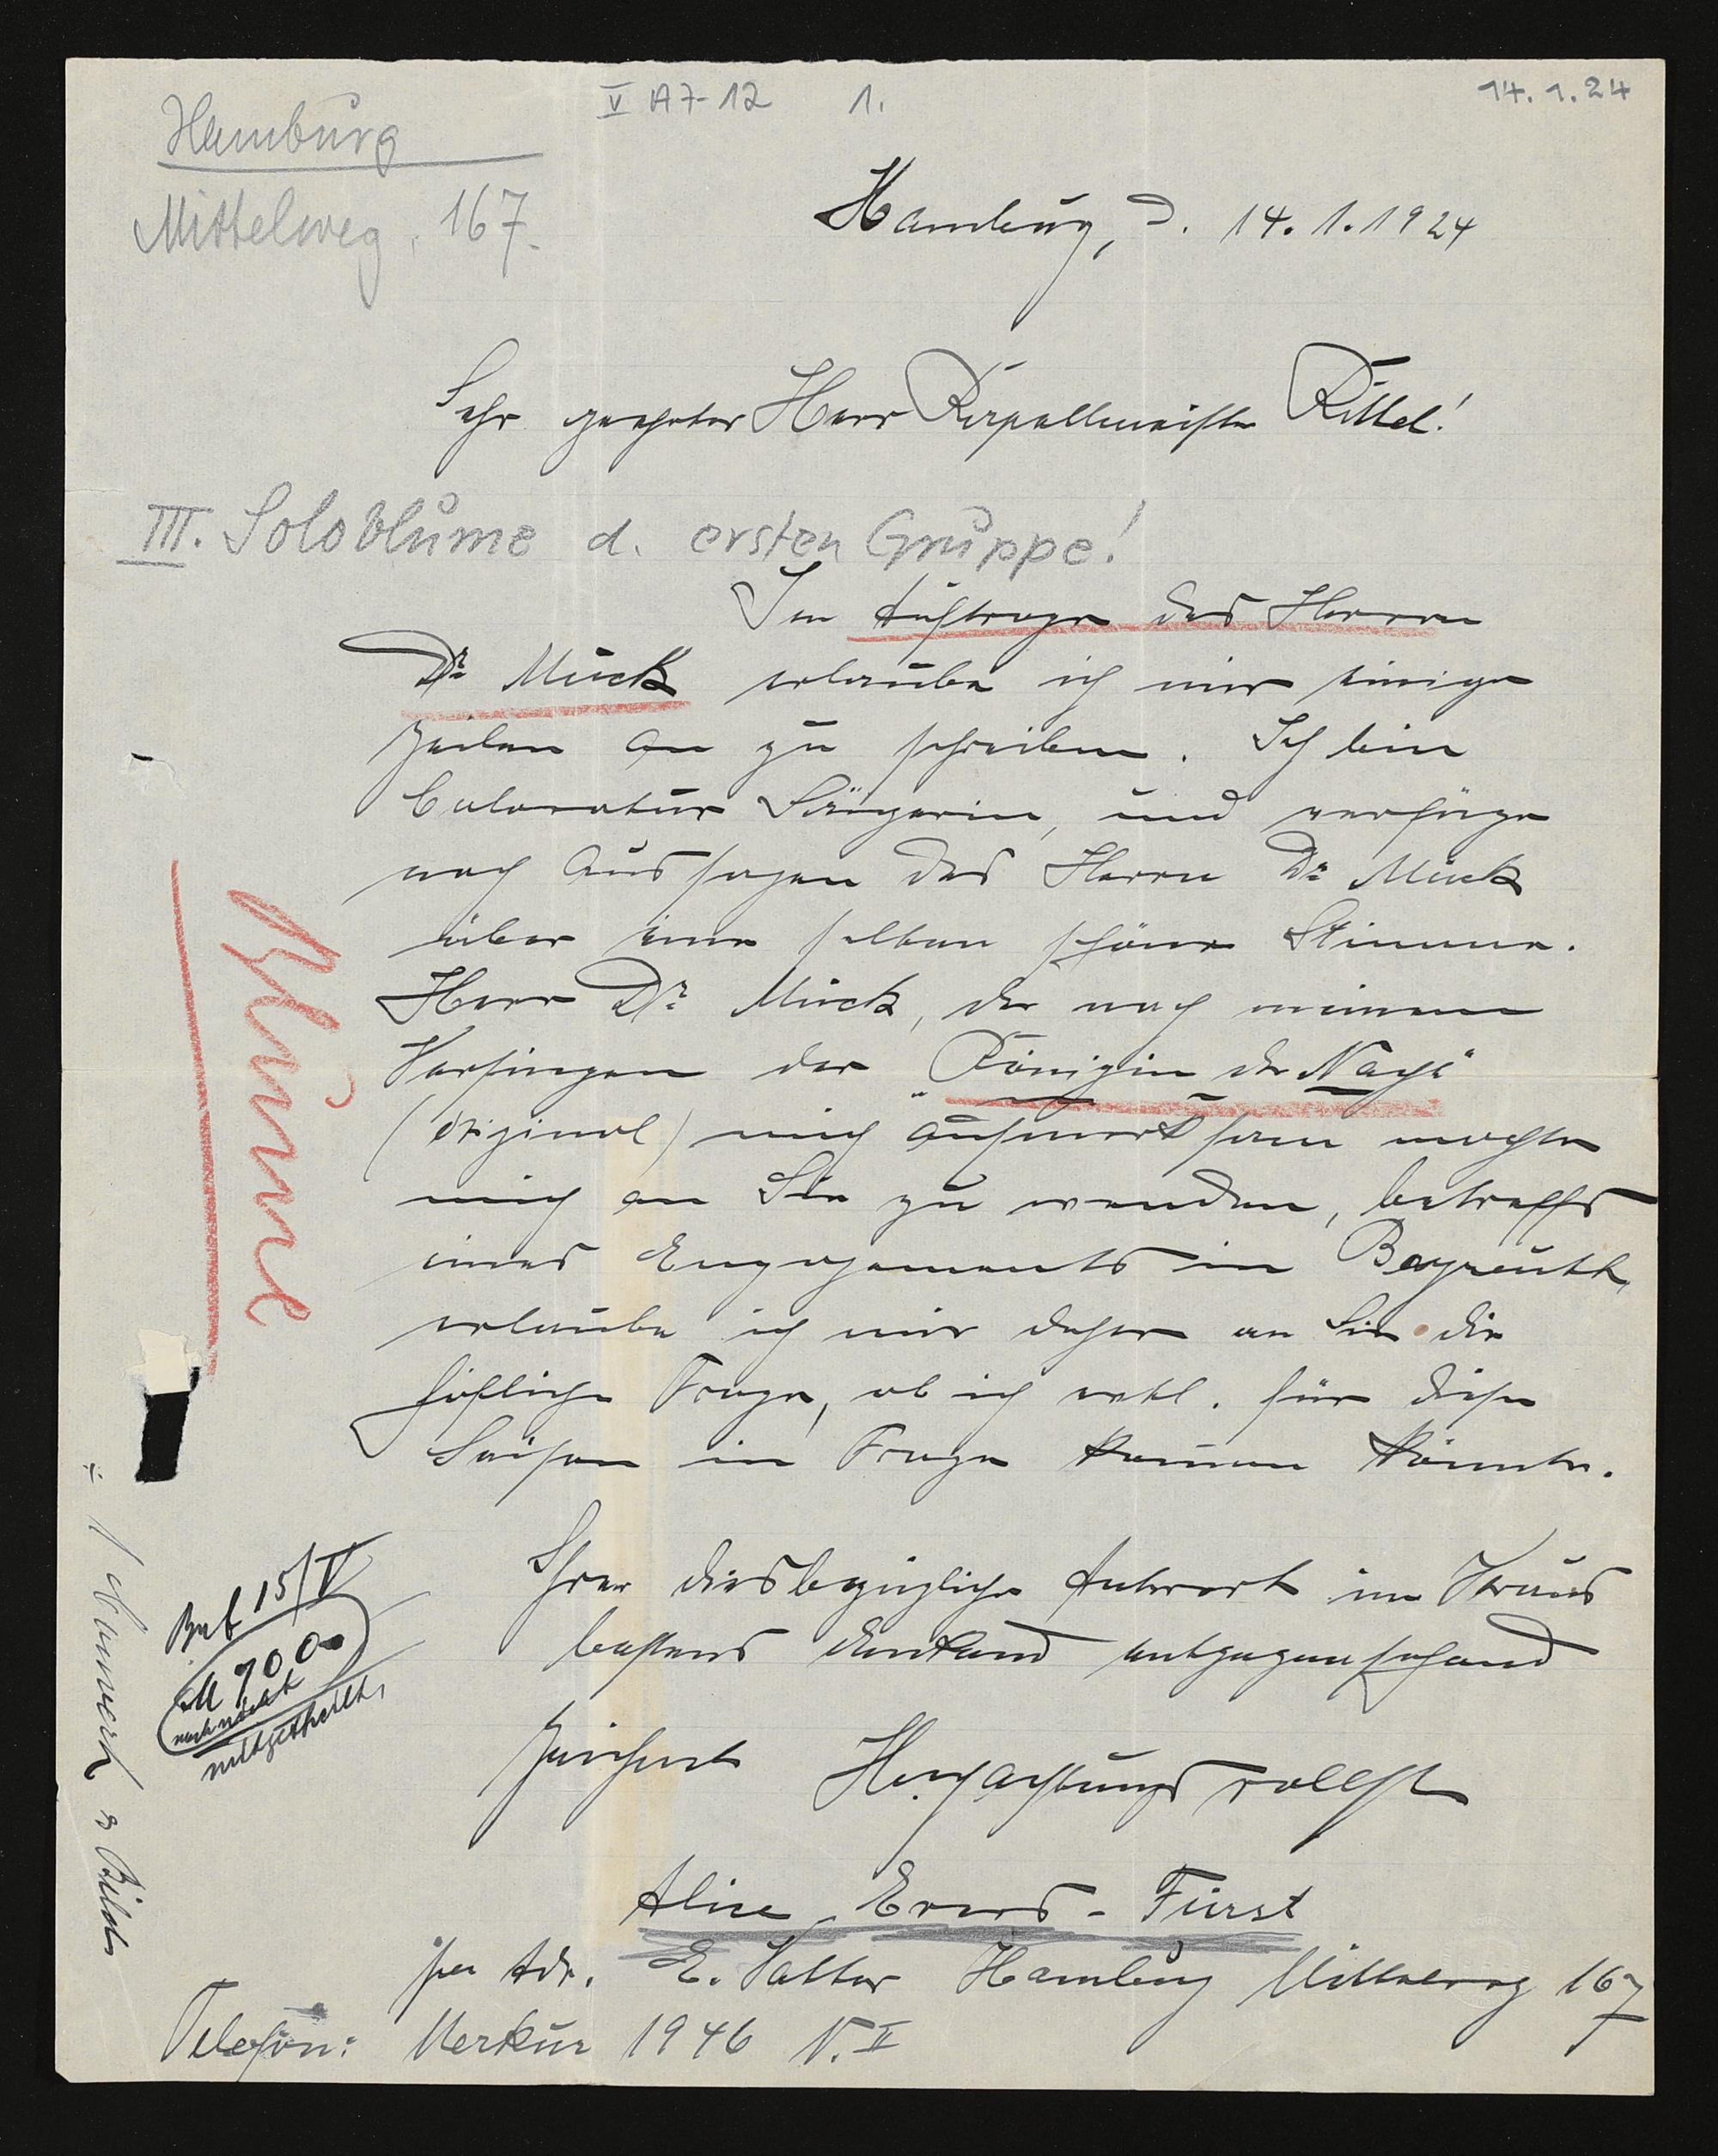 V A7-12 1.
14.1.24
Hamburg
Mittelweg 167.
Hamburg, d. 14.1.1924
Sehr geehrter Herr Kapellmeister Kittel!
III. Soloblume d. ersten Gruppe!
Im Auftrage des Herrn
Dr Muck erlaube ich mir einige
Zeilen an zu schreiben. Ich bin
Coloratur Sängerin, und verfüge
nach Aussagen des Herrn Dr Muck
über eine selten schöne Stimme.
Herr Dr Muck, der nach meinem
Vorsingen der „Königin der Nacht"
(Original) mich aufmerksam machte
mich an Sie zu wenden, betreffs
eines Engagements in Bayreuth,
erlaube ich mir daher an Sie die
höfliche Frage, ob ich evtl. für diese
Saison in Frage kommen könnte.
Ihrer diesbezügliche Antwort im Voraus
bestens dankend entgegensehend
zeichnet Hochachtungsvollst
Alice Evers-Fürst
per Adr. E. Vatter Hamburg Mittelweg 167
Telefon: Merkur 1946 N. II
Blume
15/V
M 700
noch nicht
mitgetheilt,
3 Bilder